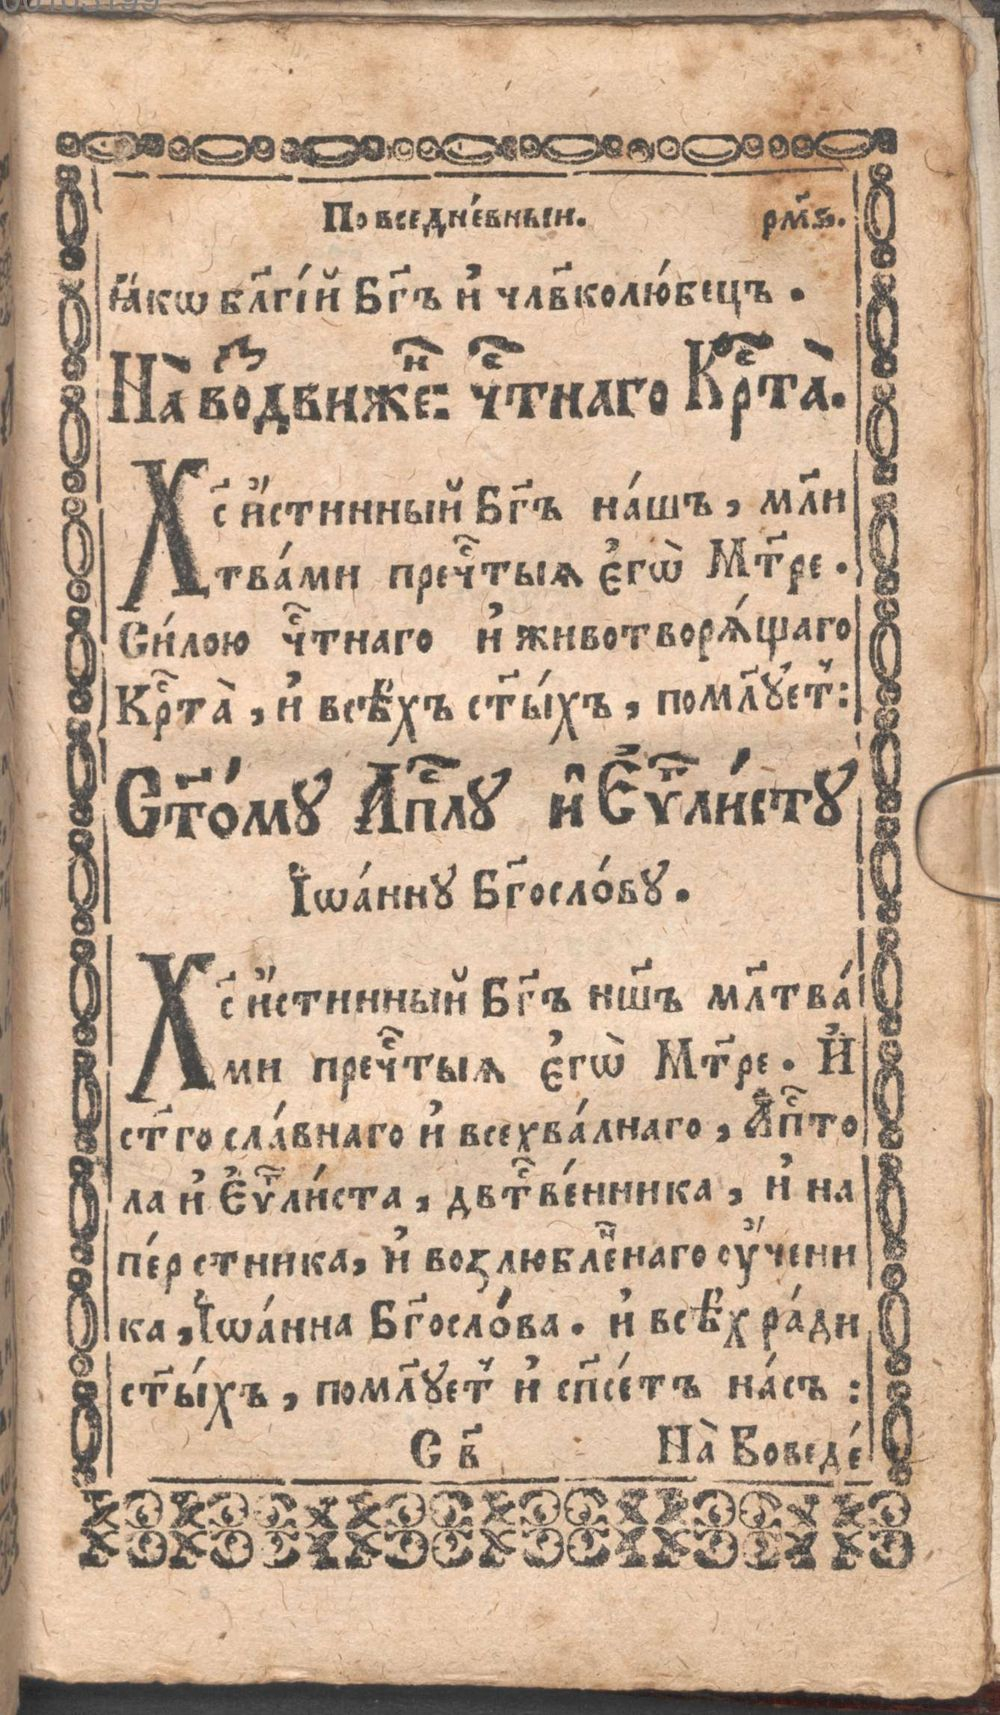 00103199
Повседне́вныи. рм҃ѕ.
ꙗ҆́кѡ бл҃гі́й Бг҃ъ и҆ чл҃вколю́бецъ.
На̀ воз̾движеⷩ҇: чⷭ҇тнаго Крⷭ҇та̀.
Хс҃ и҆́стинный Бг҃ъ на́шъ, мл҃и
тва́ми пречⷭ҇тыѧ є҆гѡ̀ Мт҃ре.
Си́лою чⷭ҇тнаго и҆ животворѧ́щаго
Крⷭ҇та̀, и҆ всѣ́хъ ст҃ы́хъ, помл҃ꙋетⸯ:
Ст҃о́мꙋ А҆пⷭ҇лꙋ и҆ Є҆ѵⷢ҇ли́стꙋ
І҆ѡа́ннꙋ Бг҃осло́вꙋ.
Хс҃ и҆́стинный Бг҃ъ нш҃ъ мл҃тва́
ми пречⷭ҇тыѧ є҆гѡ̀ Мт҃ре. И҆
ст҃го сла́внаго и҆ всехва́лнаго, А҆пⷭ҇то
ла и҆ Є҆ѵⷢ҇ли́ста, двⷭ҇тве́нника, и҆ на
пе́рстника, и҆ возлюбле́ⷩ҇наго оу҆чени
ка, І҆ѡа́нна Бг҃осло́ва. и҆ всѣ́х ра́ди
ст҃ы́хъ, помл҃ꙋетⸯ и҆ сп҃се́тъ на́съ:
С в҃ На̀ Воведе́